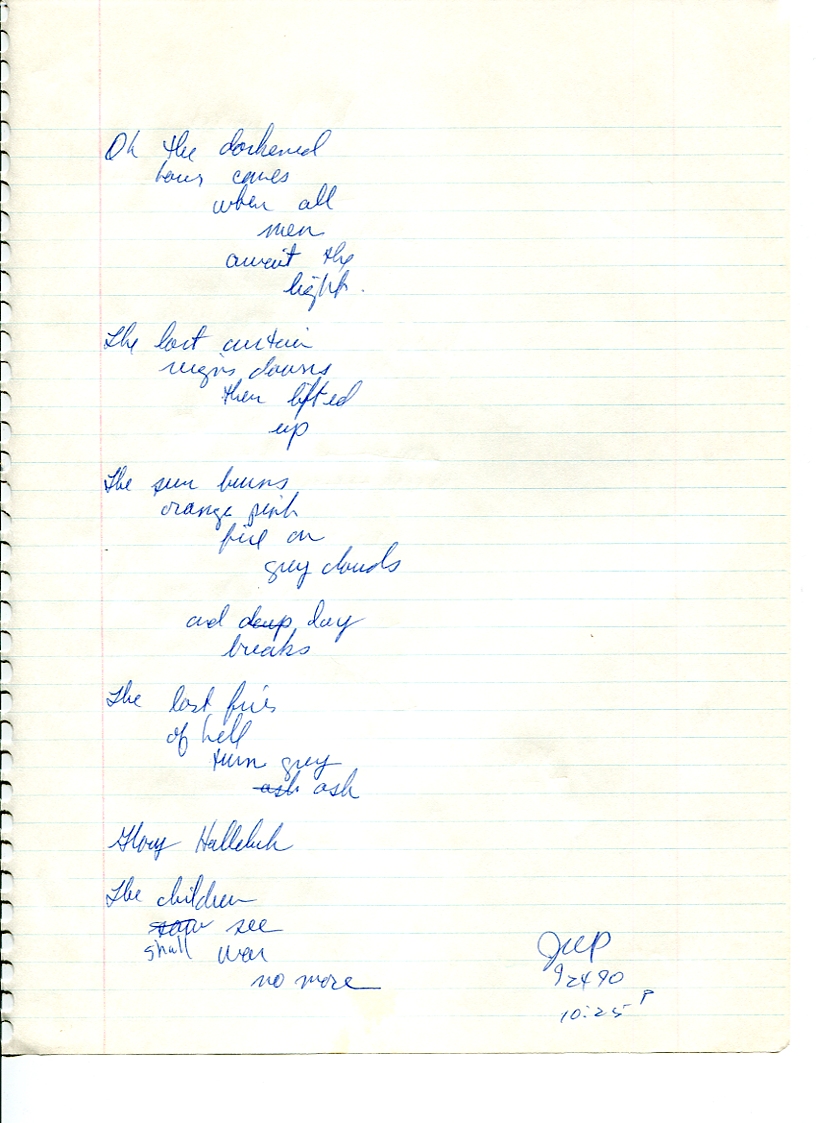 Oh the darkened
hour comes
when all
men
await the
light.
The last curtain
reigns downs
then lifted
up
The sun burns
orange pink
fire on
grey clouds
and day
breaks
The last fires
of hell
turn grey
ash ash
Glory Halleluh
The children
see
shall war
no more
JWP
92490
10:25 P